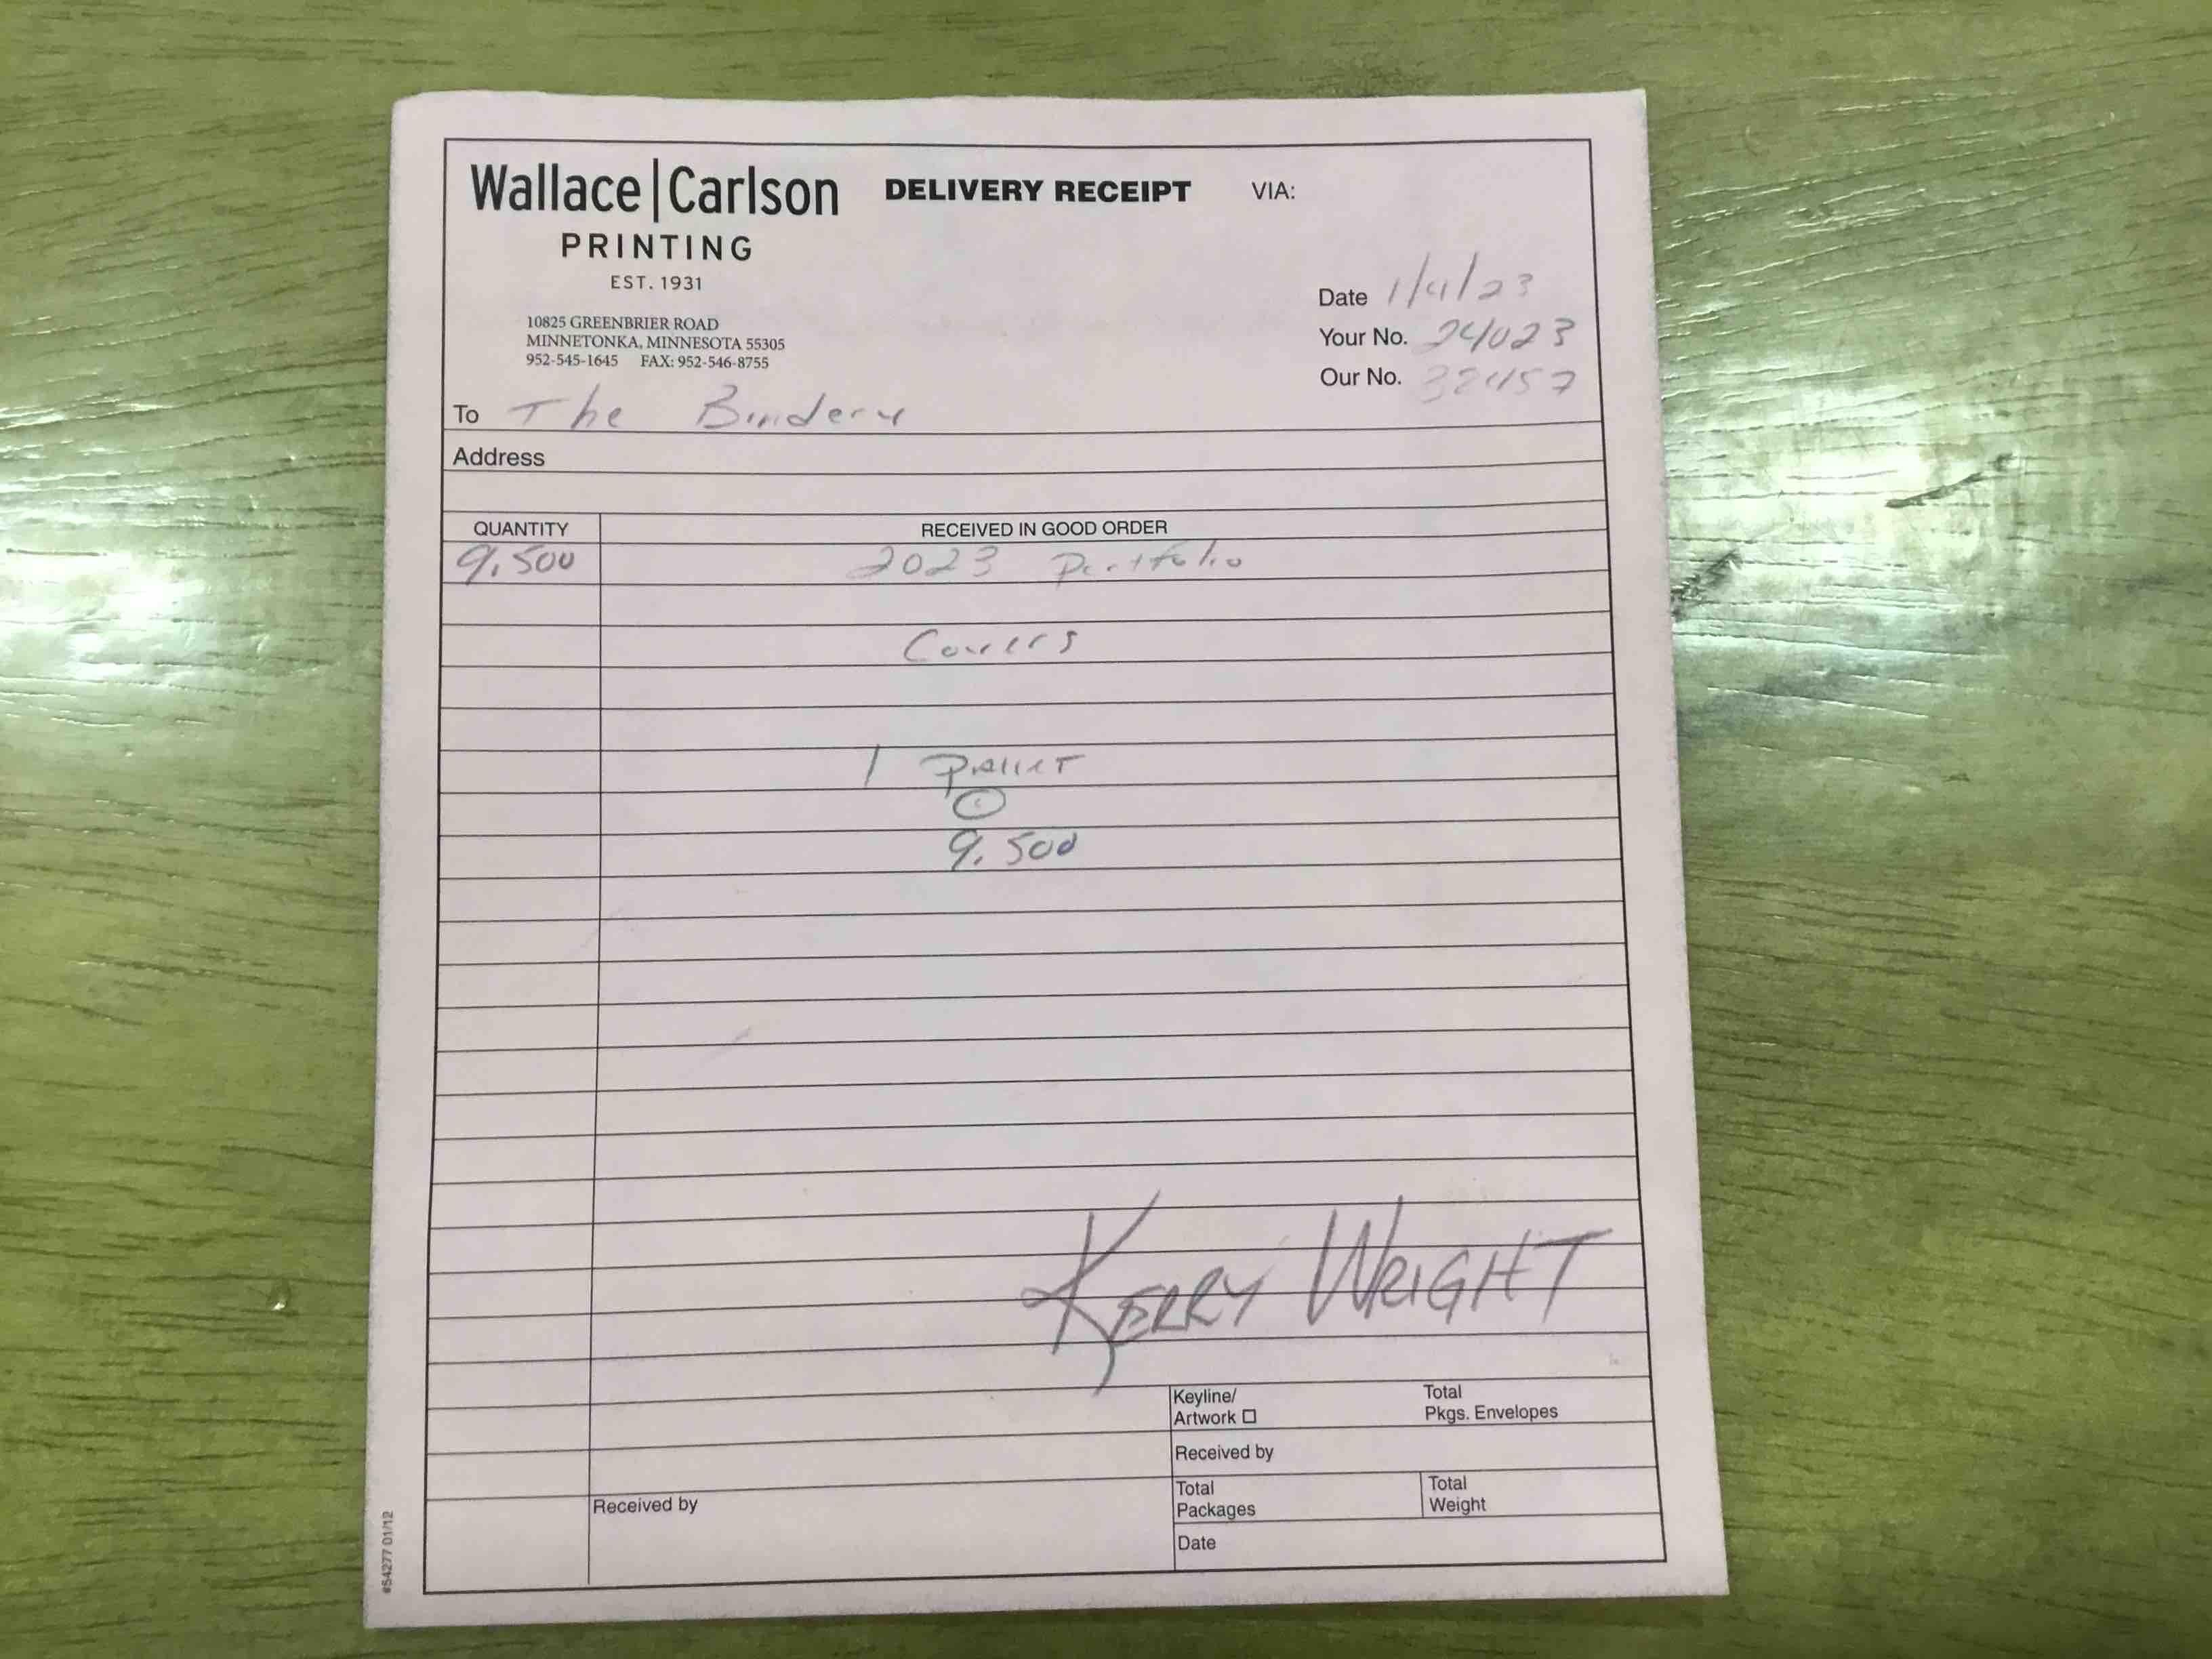 Wallace|Carlson DELIVERY RECEIPT VIA:
PRINTING
EST. 1931
10825 GREENBRIER ROAD
MINNETONKA, MINNESOTA 55305
952-545-1645 FAX: 952-546-8755
Date 1/4/23
Your No. 24023
Our No. 32457
To The Bindery
Address
QUANTITY RECEIVED IN GOOD ORDER
9,500 2023 Portfolio
Covers
1 Pallet
@
9,500
KERRY WRIGHT
Keyline/ Total
Artwork ☐ Pkgs. Envelopes
Received by
Total Total
Packages Weight
Received by
Date
#54277 01/12